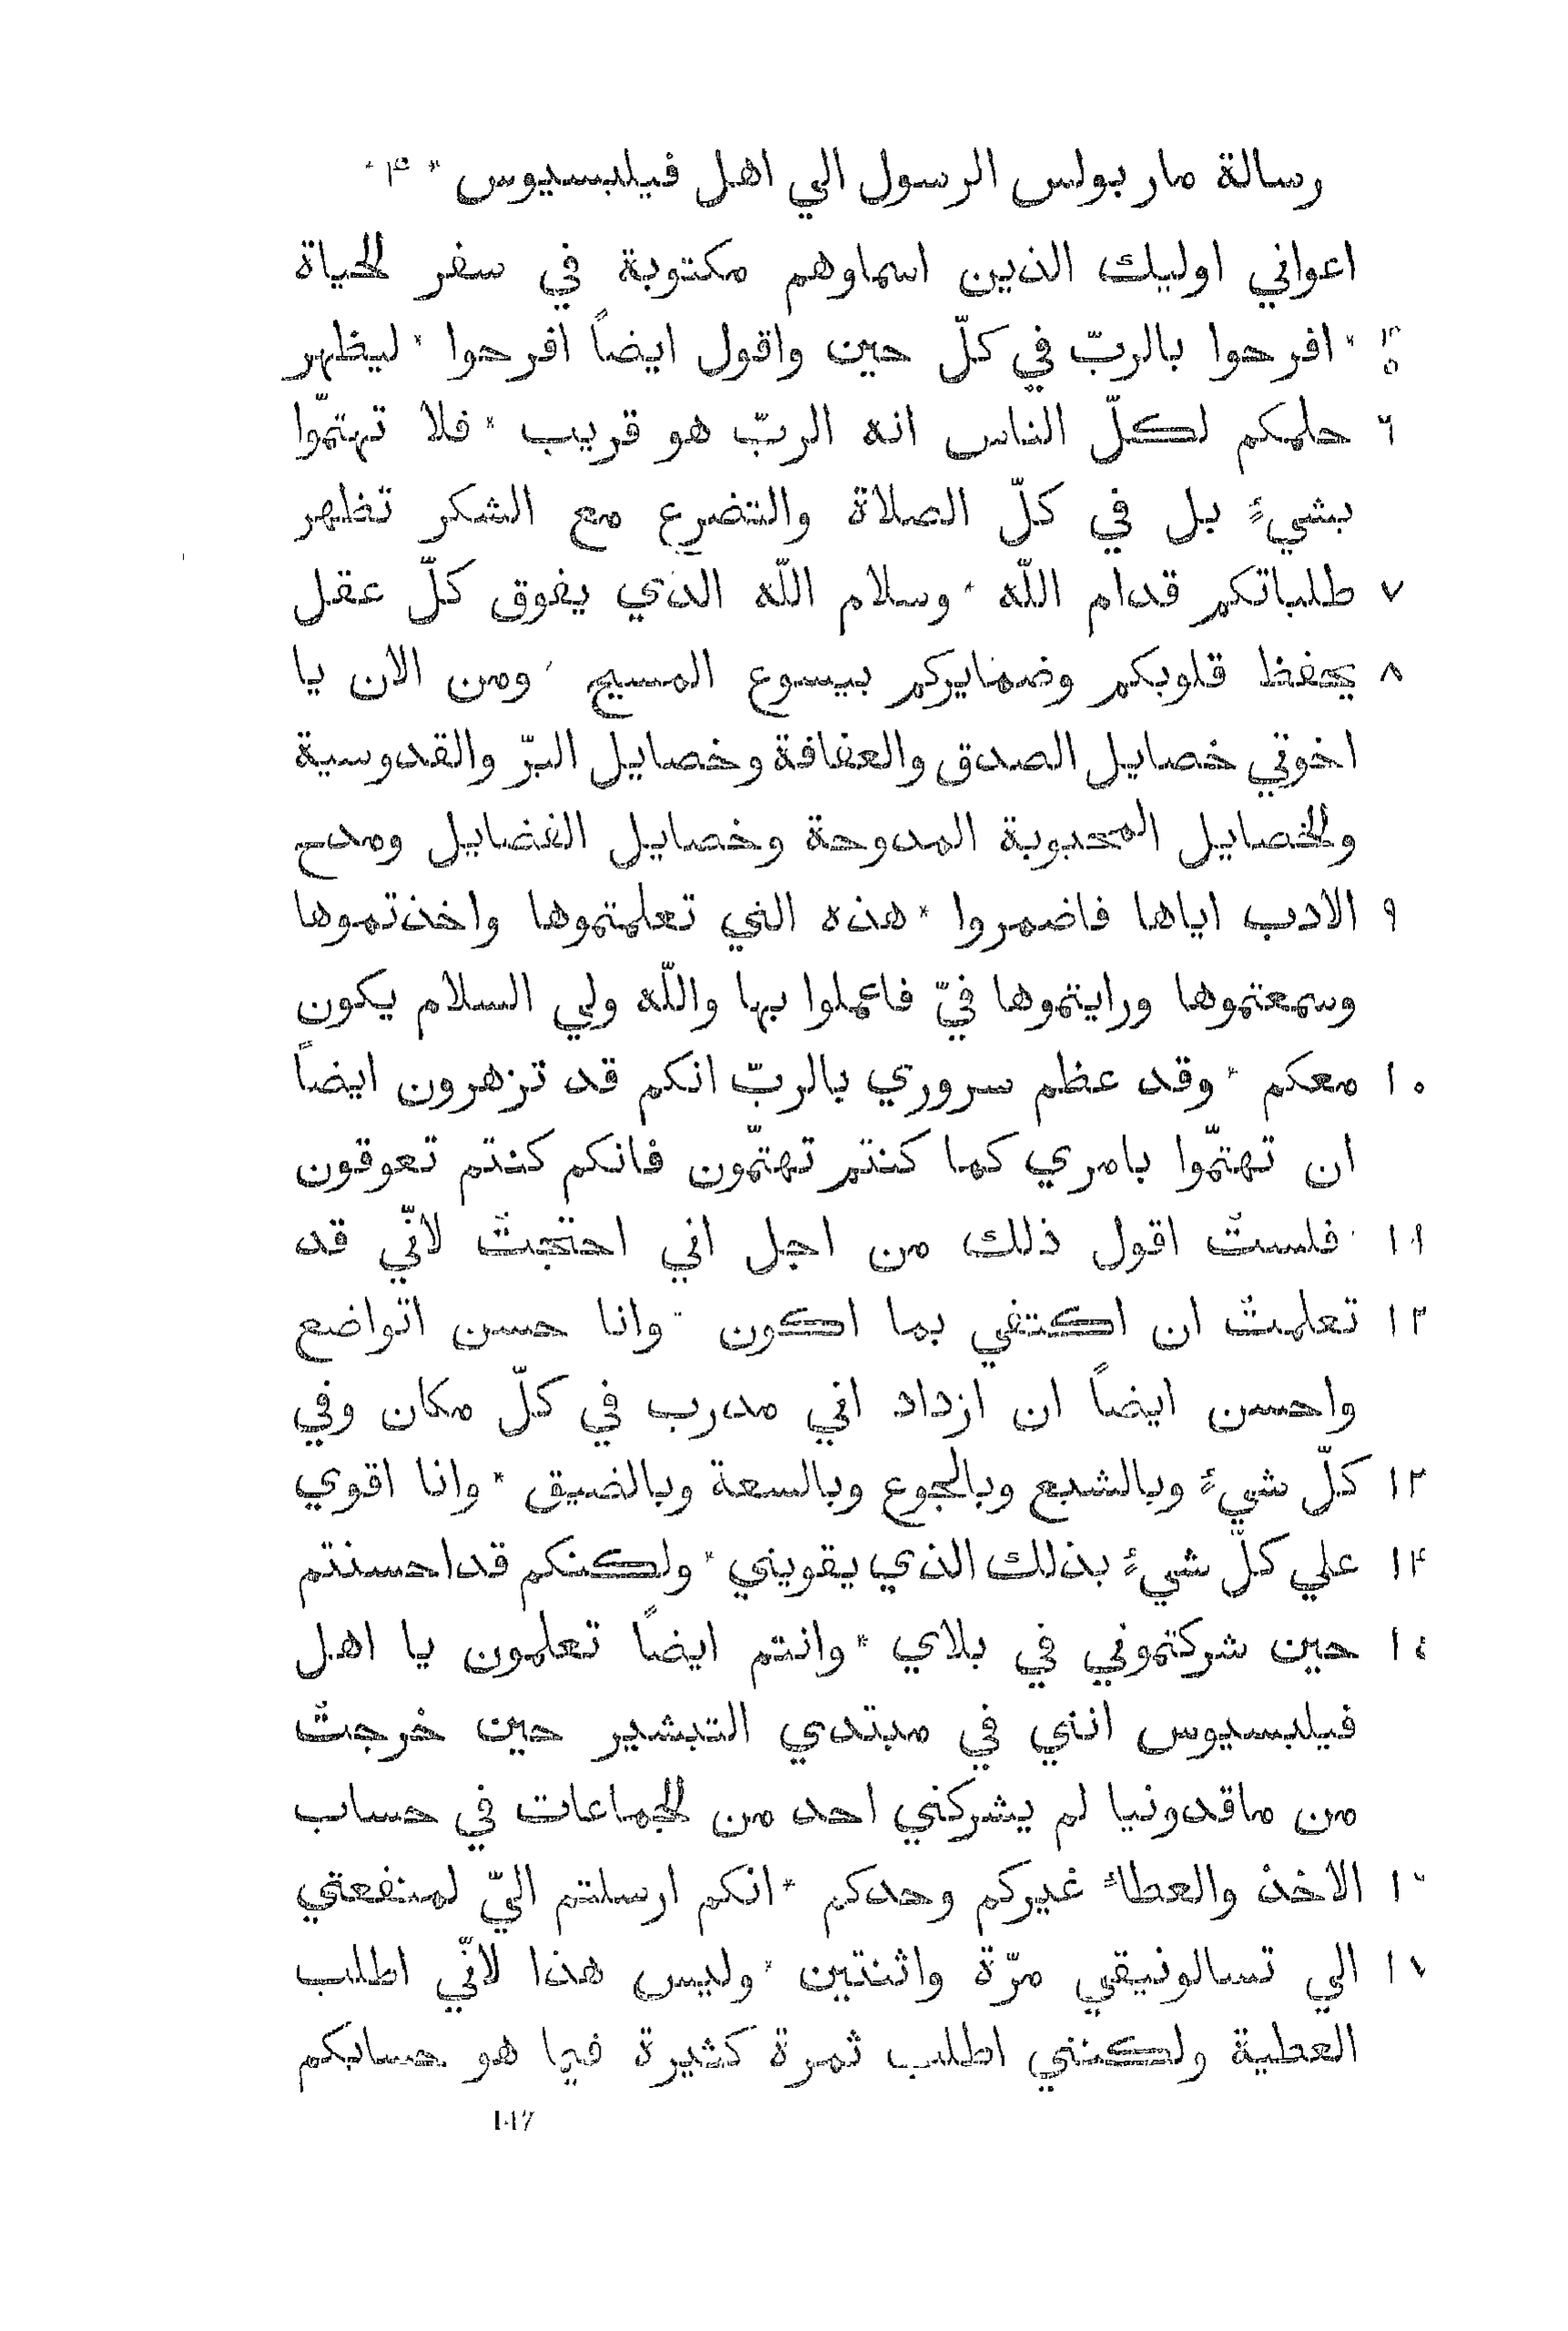 رسالة مار بولس الرسول الي اهل فيلبسيوس * ۴ *
اعواني اوليك الذين اسماوهم مكتوبة في سفر الحياة
۴ ٥ * افرحوا بالربّ في كلّ حين واقول ايضاً افرحوا * ليظهر
٦ حلمكم لكلّ الناس انه الربّ هو قريب * فلا تهتمّوا
بشيءٍ بل في كلّ الصلاة والتضرع مع الشكر تظهر
٧ طلباتكم قدام اللّه * وسلام اللّه الذي يفوق كلّ عقل
٨ يحفظ قلوبكم وضمايركم بيسوع المسيح * ومن الان يا
اخوتي خصايل الصدق والعفافة وخصايل البرّ والقدوسية
والخصايل المحبوبة المدوحة وخصايل الفضايل ومدح
٩ الادب اياها فاضمروا * هذه التي تعلمتموها واخذتموها
وسمعتموها ورايتموها فيّ فاعملوا بها واللّه ولي السلام يكون
١٠ معكم * وقد عظم سروري بالربّ انكم قد تزهرون ايضاً
ان تهتمّوا بامري كما كنتم تهتمّون فانكم كنتم تعوقون
١١ * فلستُ اقول ذلك من اجل اني احتجتُ لانّي قد
١٢ تعلمتُ ان اكتفي بما اكون * وانا حسن اتواضع
واحسن ايضاً ان ازداد اني مدرب في كلّ مكان وفي
١٣ كلّ شيءٍ وبالشبع وبالجوع وبالسعة وبالضيق * وانا اقوي
١۴ علي كلّ شيءٍ بذلك الذي يقويني * ولكنكم قد احسنتم
١٥ حين شركتموني في بلاي * وانتم ايضاً تعلمون يا اهل
فيلبسيوس انني في مبتدي التبشير حين خرجتُ
من ماقدونيا لم يشركني احد من الجماعات في حساب
١٦ الاخذ والعطاءِ غيركم وحدكم * انكم ارسلتم اليّ لمنفعتي
١٧ الي تسالونيقي مرّة واثنتين * وليس هذا لانّي اطلب
العطية ولكنني اطلب ثمرة كثيرة فيما هو حسابكم
147